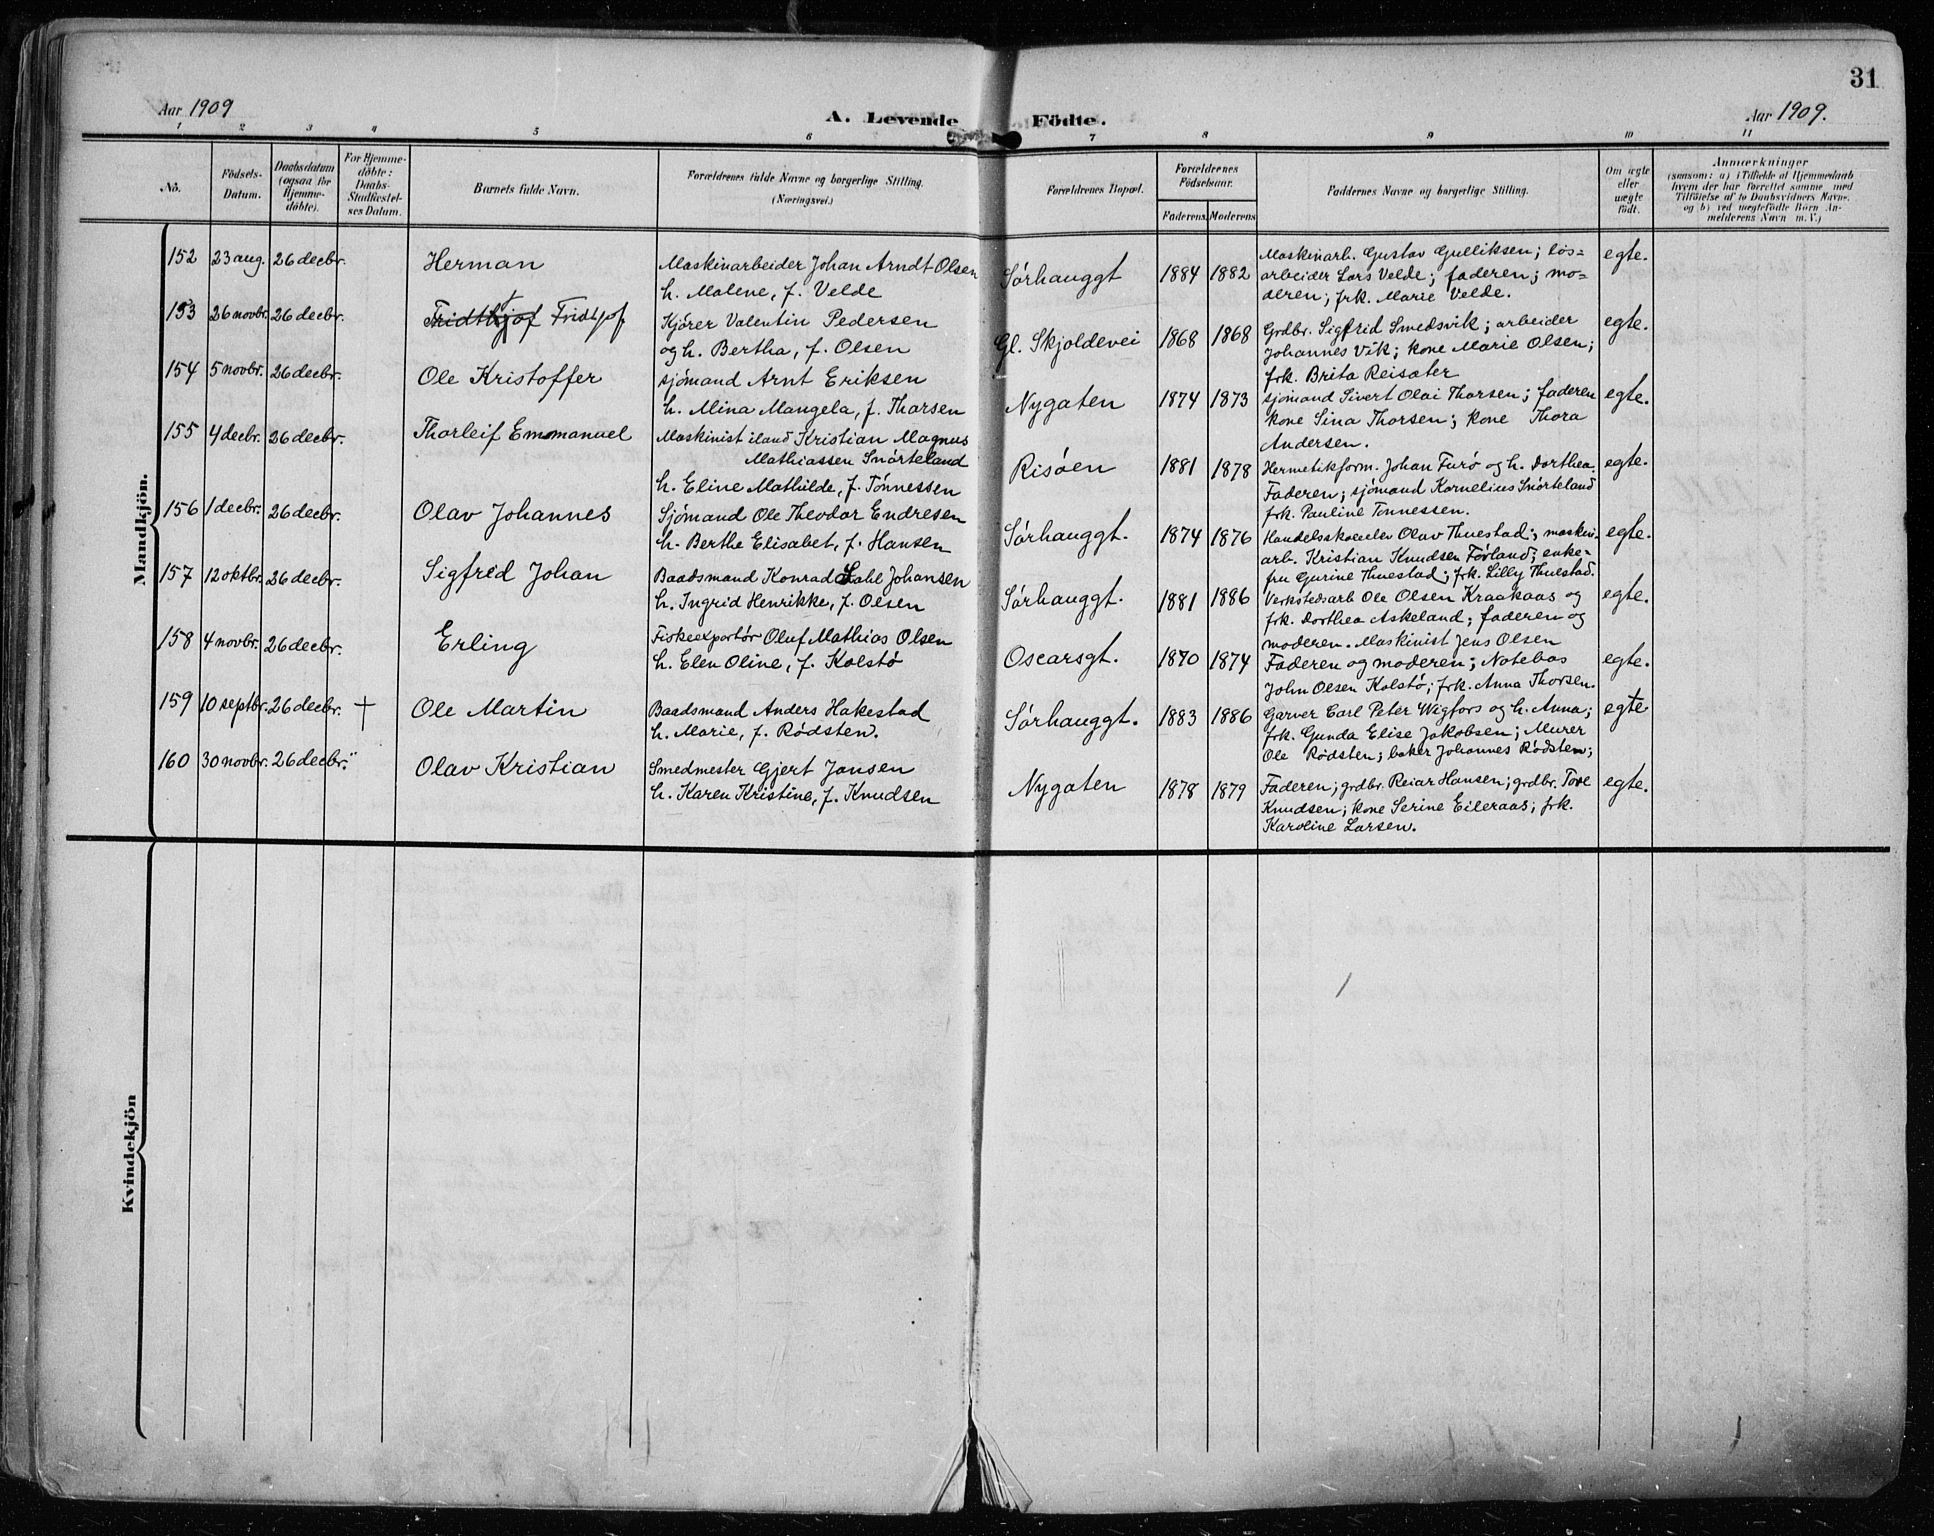 31
Aar 1909
A. Levende Födte.
Aar 1909.
1 2 3 4 5 6 7 8 9 10 11
No.
Födsels-
Datum.
Daabsdatum
(ogsaa for
Hjemme-
döbte).
For Hjemme-
döbte:
Daabs-
Stadfæstel-
ses Datum.
Barnets fulde Navn.
Forældrenes fulde Navne og borgerlige Stilling.
(Næringsvei.)
Forældrenes Bopæl.
Forældrenes
Födselsaar.
Faderens. Moderens
Faddernes Navne og borgerlige Stilling.
Om ægte
eller
uægte
födt.
Anmærkninger
(saasom: a) i Tilfælde af Hjemmedaab
hvem der har forrettet samme med
Tilföielse af to Daabsvidners Navne.
og b) ved uægtefödte Börn An-
melderens Navn m. V.)
Mandkjön.
152 23 aug. 26 decbr. Herman
Maskinarbeider Johan Arndt Olsen
h. Malene, f. Velde
Sørhauggt 1884 1882
Maskinarb. Gustav Gulliksen; løs-
arbeider Lars Velde; faderen; mo-
deren; frk. Marie Velde.
egte.
153 26 novbr. 26 decbr. Fridthjof Fridtjof
Kjører Valentin Pedersen
og h. Bertha, f. Olsen
Gl. Skjoldevei 1868 1868
Grdbr. Sigfrid Smedsvik; arbeider
Johannes Vik; kone Marie Olsen;
frk. Brita Reisæter
egte.
154 5 novbr. 26 decbr. Ole Kristoffer
sjömand Arnt Eriksen
h. Mina Mangela, f. Thorsen
Nygaten 1874 1873
sjömand Sivert Olai Thorsen; faderen
kone Sina Thorsen; kone Thora
Andersen.
egte.
155 4 decbr. 26 decbr. Thorleif Emmanuel
Maskinist iland Kristian Magnus
Mathiassen Snörteland
h. Eline Mathilde, f. Tönnessen
Risöen 1881 1878
Hermetikform. Johan Furø og h. Dorthea.
Faderen; sjömand Kornelius Snörteland
frk. Pauline Tönnessen.
egte.
156 1 decbr. 26 decbr. Olav Johannes
Sjömand Ole Theodor Endresen
h. Berthe Elisabet, f. Hansen
Sørhauggt. 1874 1876
Handelsskoeelev Olav Thuestad; maskin.
arb. Kristian Knudsen Førland; enke-
fru Gurine Thuestad; frk. Lilly Thuestad.
egte.
157 12 oktbr. 26 decbr. Sigfred Johan
Baadsmand Konrad Lahl Johansen
h. Ingrid Henrikke, f. Olsen
Sørhauggt. 1881 1886
Verkstedsarb Ole Olsen Kraakaas og
frk. Dorthea Askeland; faderen og
moderen. Maskinist Jens Olsen
egte.
158 4 novbr. 26 decbr. Erling
Fiskeexportør Oluf Mathias Olsen
h. Elen Oline, f. Kolstø
Oscarsgt. 1870 1874
Faderen og moderen; Notebas
John Olsen Kolstø; frk. Anna Thorsen.
egte.
159 10 septbr. 26 decbr. † Ole Martin
Baadsmand Anders Hakestad
h. Marie, f. Rødsten.
Sørhauggt. 1883 1886
Garver Carl Peter Wigfors og h. Anna;
frk. Gunda Elise Jakobsen; Murer
Ole Rødsten; baker Johannes Rødsten;
egte
160 30 novbr. 26 decbr. Olav Kristian
Smedmester Gjert Jansen
h. Karen Kristine, f. Knudsen
Nygaten 1878 1879
Faderen; grdbr. Reiar Hansen; grdbr. Tore
Knudsen; kone Serine Eileraas; frk.
Karoline Larsen.
egte.
Kvindekjön